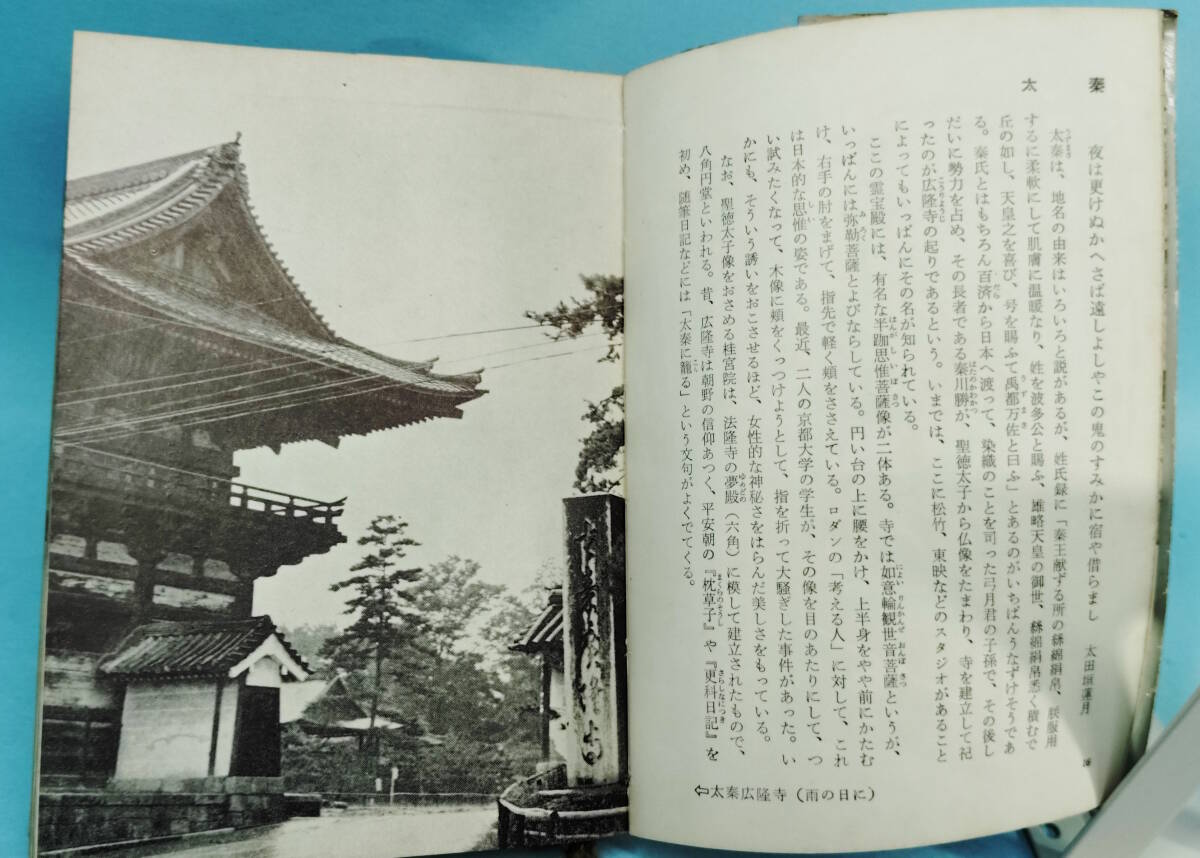 太秦
夜は更けぬかへさば遠しよしやこの鬼のすみかに宿や借らまし　太田垣蓮月
太秦は、地名の由来はいろいろと説があるが、姓氏録に「秦王献ずる所の絲綿絹帛、朕服用
するに柔軟にして肌膚に温暖なり、姓を波多公と賜ふ、雄略天皇の御世、絲綿絹帛悉く積むで
丘の如し、天皇之を喜び、号を賜ふて禹都万佐と曰ふ」とあるのがいちばんうなずけそうであ
る。秦氏とはもちろん百済から日本へ渡って、染織のことを司った弓月君の子孫で、その後し
だいに勢力を占め、その長者である秦川勝が、聖徳太子から仏像をたまわり、寺を建立して祀
ったのが広隆寺の起りであるという。いまでは、ここに松竹、東映などのスタジオがあること
によってもいっぱんにその名が知られている。
ここの霊宝殿には、有名な半跏思惟菩薩像が二体ある。寺では如意輪観世音菩薩というが、
いっぱんには弥勒菩薩とよびならしている。円い台の上に腰をかけ、上半身をやや前にかたむ
け、右手の肘をまげて、指先で軽く頬をささえている。ロダンの「考える人」に対して、これ
は日本的な思惟の姿である。最近、二人の京都大学の学生が、その像を目のあたりにして、つ
い試みたくなって、木像に頬をくっつけようとして、指を折って大騒ぎした事件があった。い
かにも、そういう誘いをおこさせるほど、女性的な神秘さをはらんだ美しさをもっている。
なお、聖徳太子像をおさめる桂宮院は、法隆寺の夢殿（六角）に模して建立されたもので、
八角円堂といわれる。昔、広隆寺は朝野の信仰あつく、平安朝の『枕草子』や『更科日記』を
初め、随筆日記などには「太秦に籠る」という文句がよくでてくる。
⇦太秦広隆寺（雨の日に）